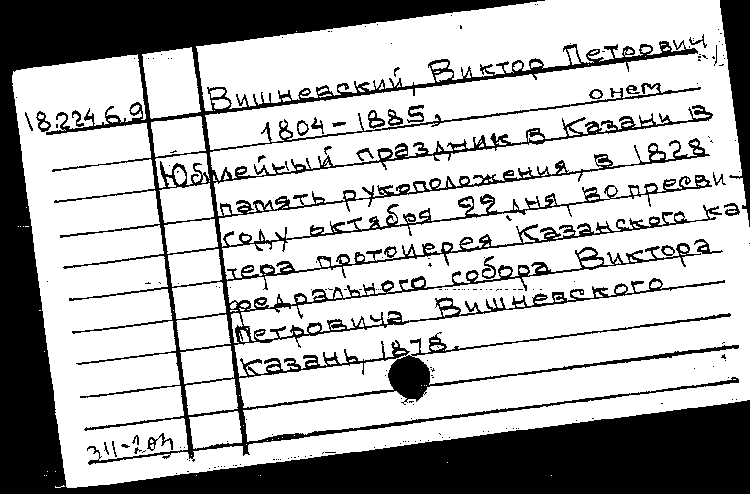 Вишневский, Виктор Петрович
18.224.6.9
1804-1885, о нем.
Юбилейный праздник в Казани в
память рукоположения, в 1828
году октября 22 дня, во пресви-
тера протоиерея Казанского ка-
федрального собора Виктора
Петровича Вишневского
Казань, 1878.